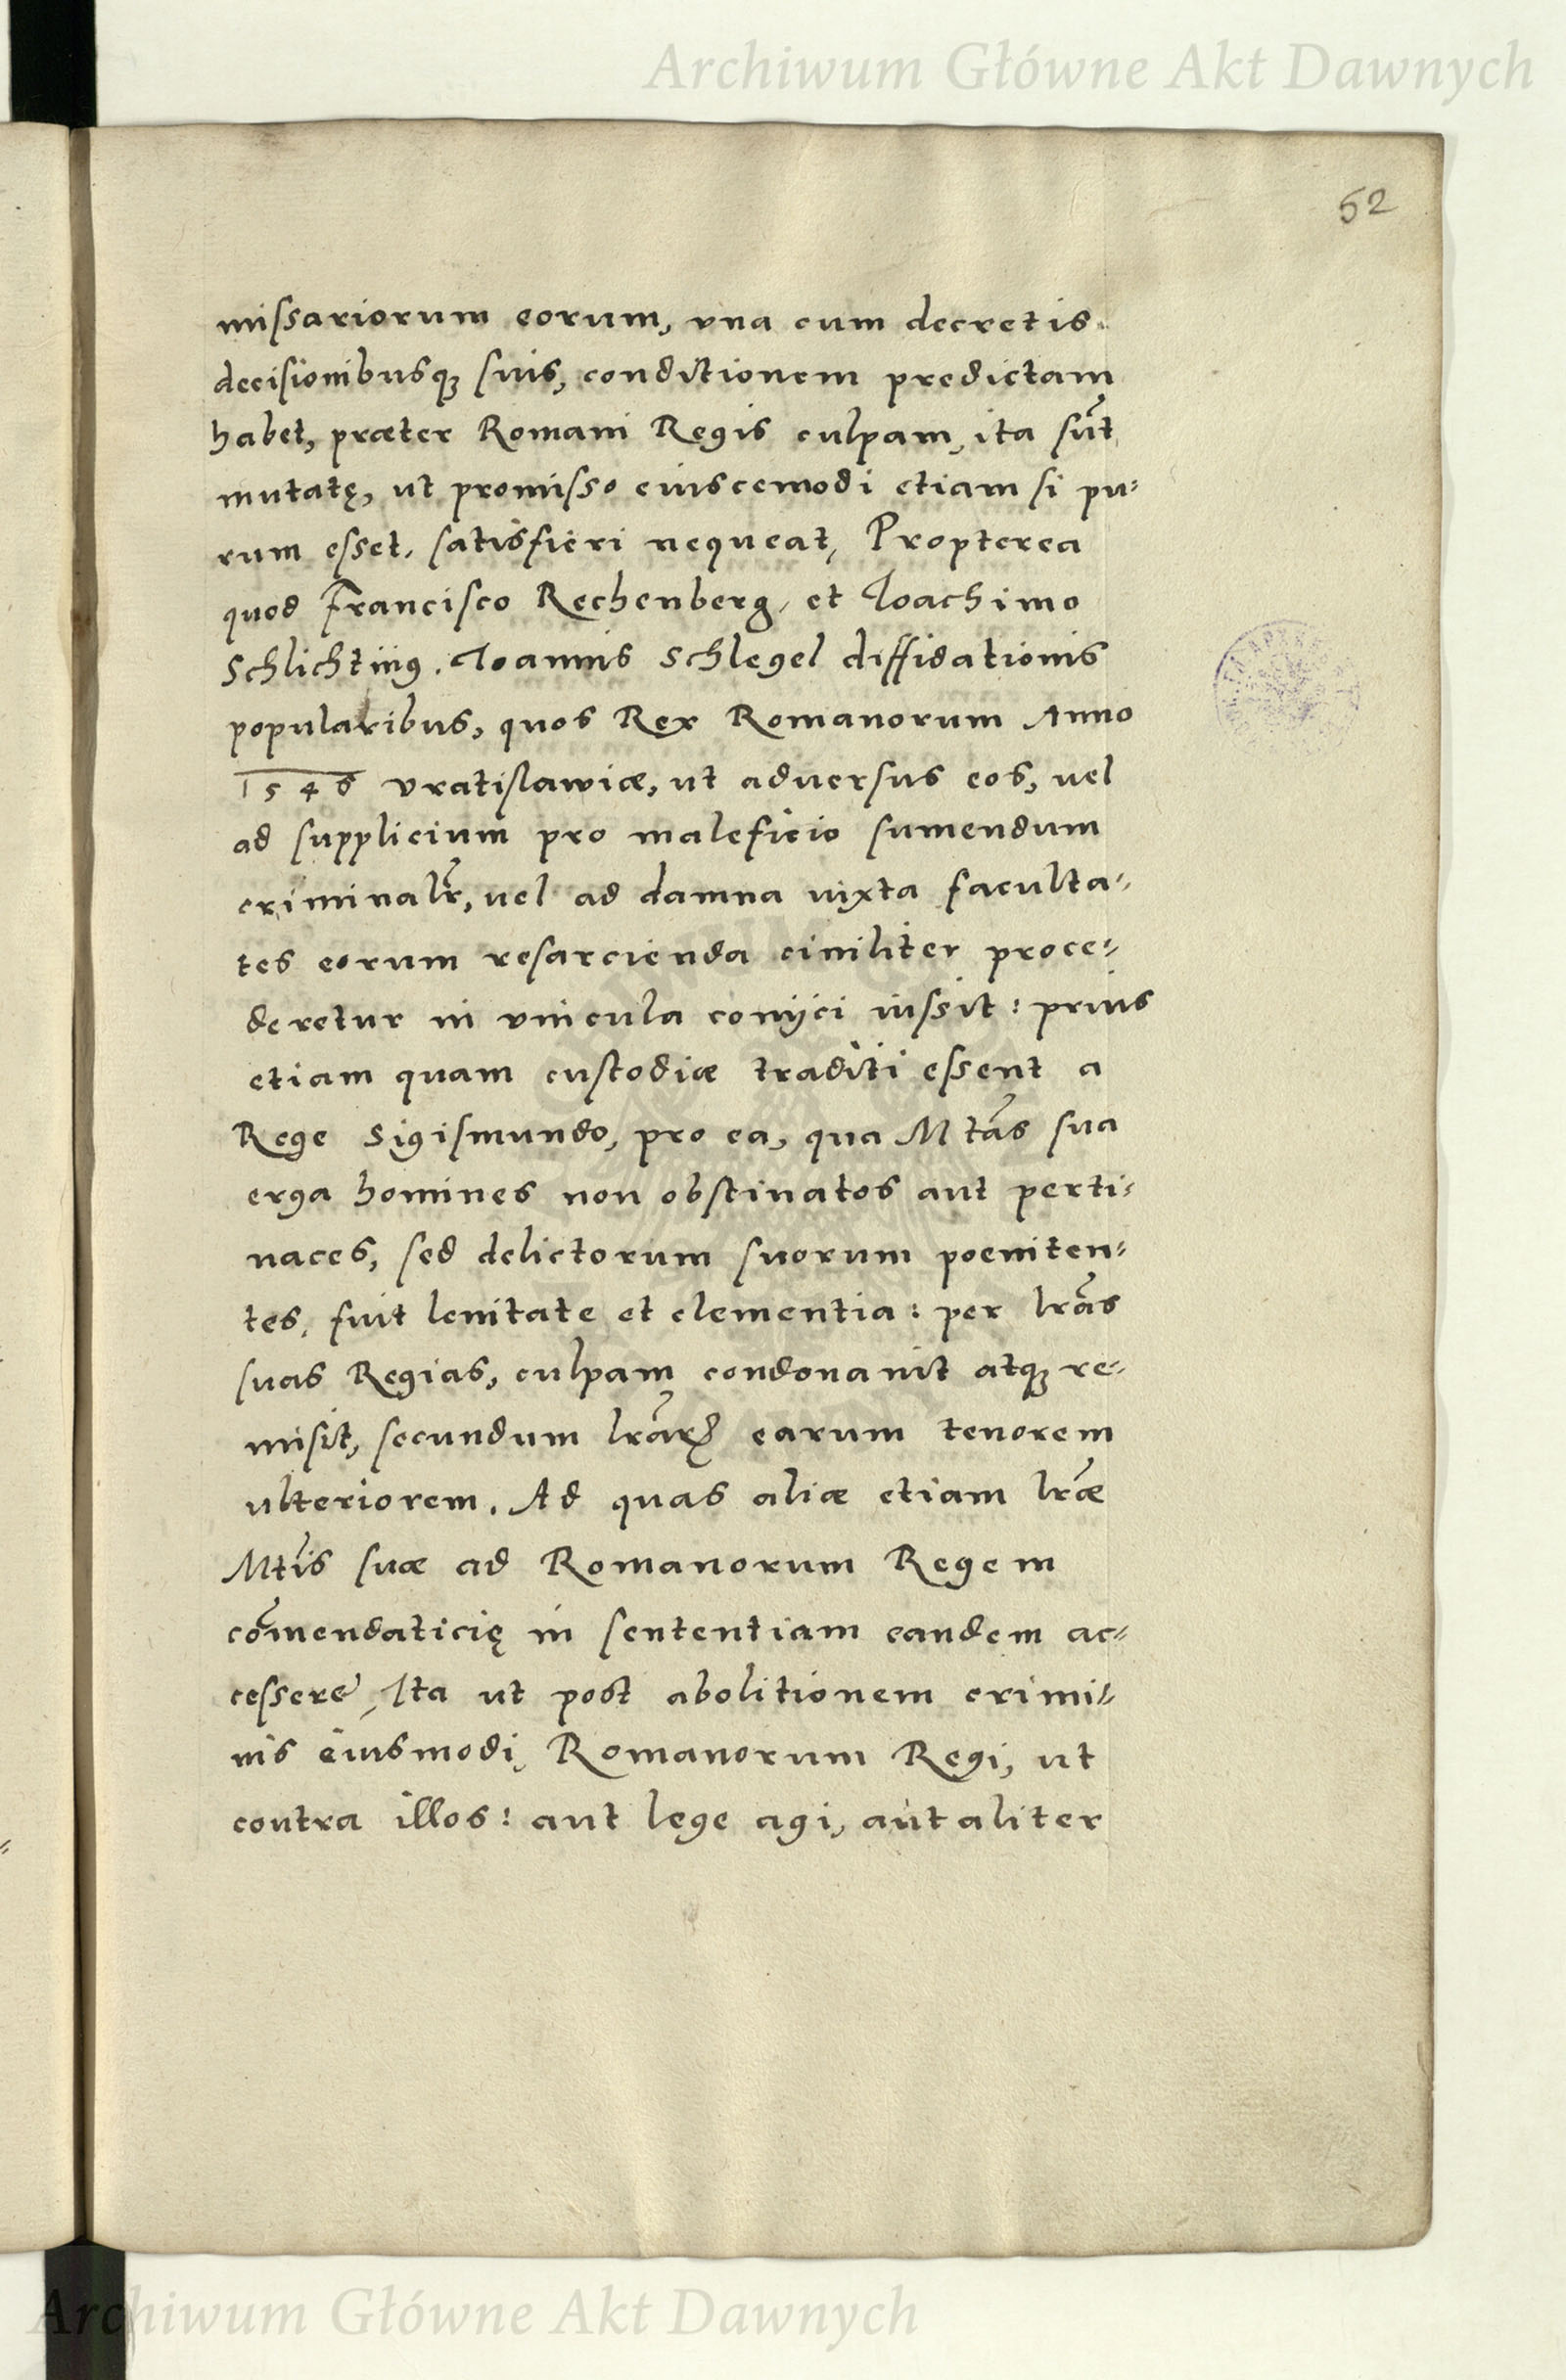 Archiwum Główne Akt Dawnych
52
missariorum eorum, vna cum decretis
decisionibusq₃ suis, conditionem predictam
habet, præter Romani Regis culpam, ita su͂t
mutatę, ut promisso eiuscemodi etiam si pu⸗
rum esset, satisfieri nequeat, Propterea
quod Francisco Rechenberg, et Ioachimo
Schlichting, Ioannis Schlegel diffidationis
popularibus, quos Rex Romanorum Anno
1546 vratislawiæ, ut aduersus eos, uel
ad supplicium pro maleficio sumendum
criminalr͂, uel ad damna iuxta faculta⸗
tes eorum resarcienda ciuiliter proce⸗
deretur in vincula conijci iussit: prius
etiam quam custodiæ traditi essent a
Rege Sigismundo, pro ea, qua Mta͂s sua
erga homines non obstinatos aut perti⸗
naces, sed delictorum suorum poeniten⸗
tes, fuit lenitate et clementia: per lr͂as
suas Regias, culpam condonauit atq₃ re⸗
misit, secundum lr͂aꝝ earum tenorem
ulteriorem. Ad quas aliæ etiam lr͂æ
Mti͂s suæ ad Romanorum Regem
co͂mendaticię in sententiam eandem ac⸗
cessere, Ita ut post abolitionem crimi⸗
nis eiusmodi, Romanorum Regi, ut
contra illos: aut lege agi, aut aliter
Archiwum Główne Akt Dawnych